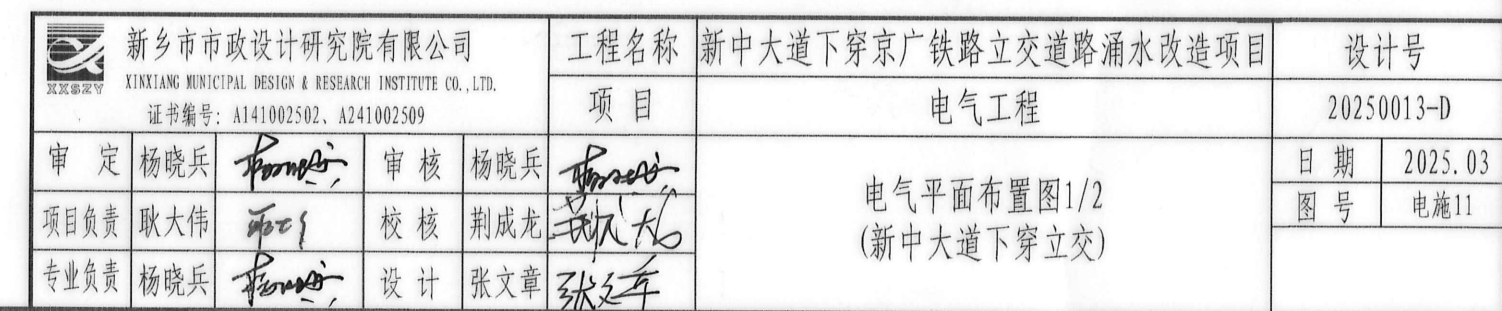 XXSZY
新乡市市政设计研究院有限公司
XINXIANG MUNICIPAL DESIGN & RESEARCH INSTITUTE CO.,LTD.
证书编号: A141002502、A241002509
工程名称 新中大道下穿京广铁路立交道路涌水改造项目 设计号
项目 电气工程 20250013-D
审定 杨晓兵 审核 杨晓兵 日期 2025.03
项目负责 耿大伟 校核 荆成龙 图号 电施11
专业负责 杨晓兵 设计 张文章 张文章
电气平面布置图1/2
(新中大道下穿立交)